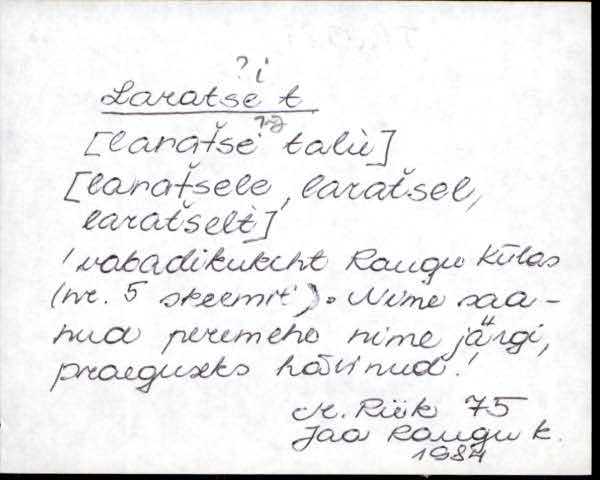 ? i
Laratse t
[laratše talù]
[laratšele, laratšel,
laratšelt]
! vabadikukcht Raugu külas
(nr. 5 skeemil). Nime saa-
nud peremehe nime järgi,
praeguseks hävinud.!
M. Riik 75
Jaa Raugu k.
1984